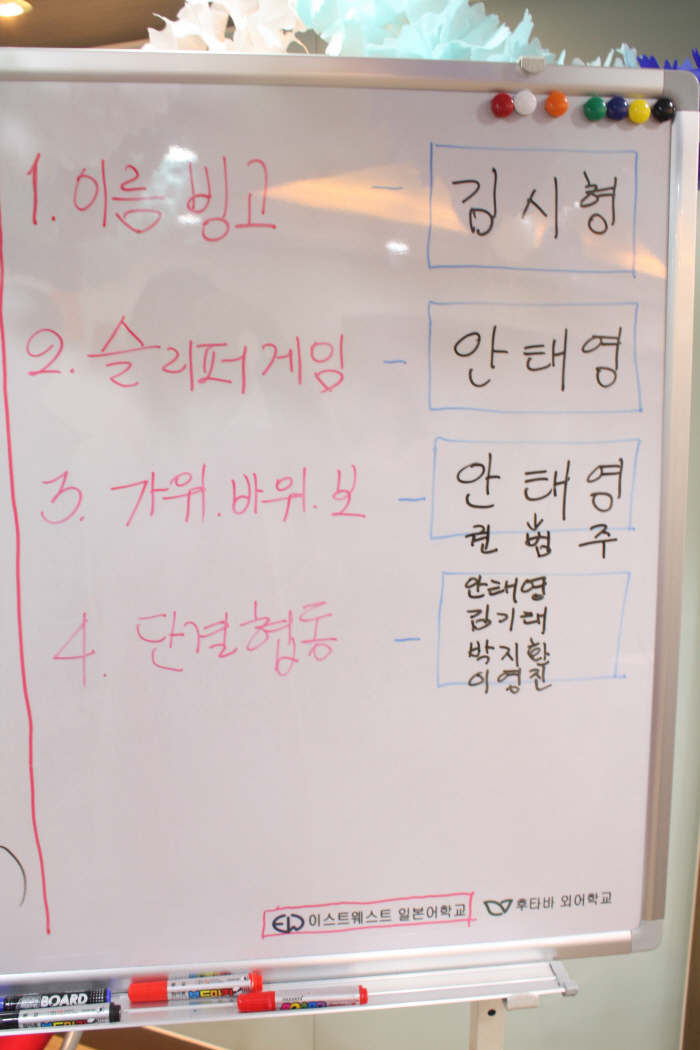 1. 이름 빙고 - 김시형
2. 슬리퍼게임 - 안태영
3. 가위.바위.보 - 안태영
권범주
4. 단결협동 - 안태영
김기태
박지환
이영진
EW 이스트웨스트 일본어학교
후타바 외어학교
BOARD